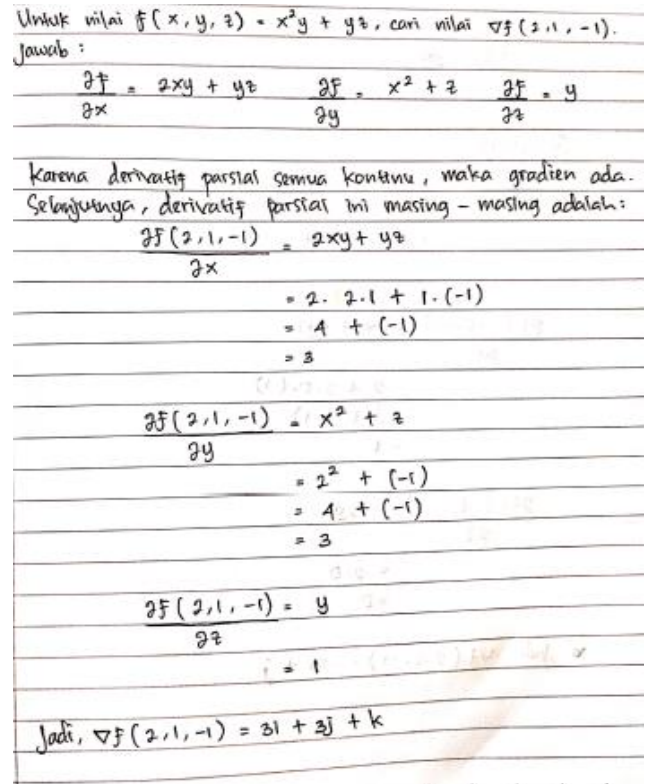 Untuk nilai f(x, y, z) = x²y + yz, cari nilai ∇f(2,1,-1).
Jawab :
∂f/∂x = 2xy + yz   ∂f/∂y = x² + z   ∂f/∂z = y
Karena derivatif parsial semua kontinu, maka gradien ada.
Selanjutnya, derivatif parsial ini masing - masing adalah:
∂f(2,1,-1)/∂x = 2xy + yz
= 2. 2.1 + 1.(-1)
= 4 + (-1)
= 3
∂f(2,1,-1)/∂y = x² + z
= 2² + (-1)
= 4 + (-1)
= 3
∂f(2,1,-1)/∂z = y
= 1
Jadi, ∇f(2,1,-1) = 3i + 3j + k